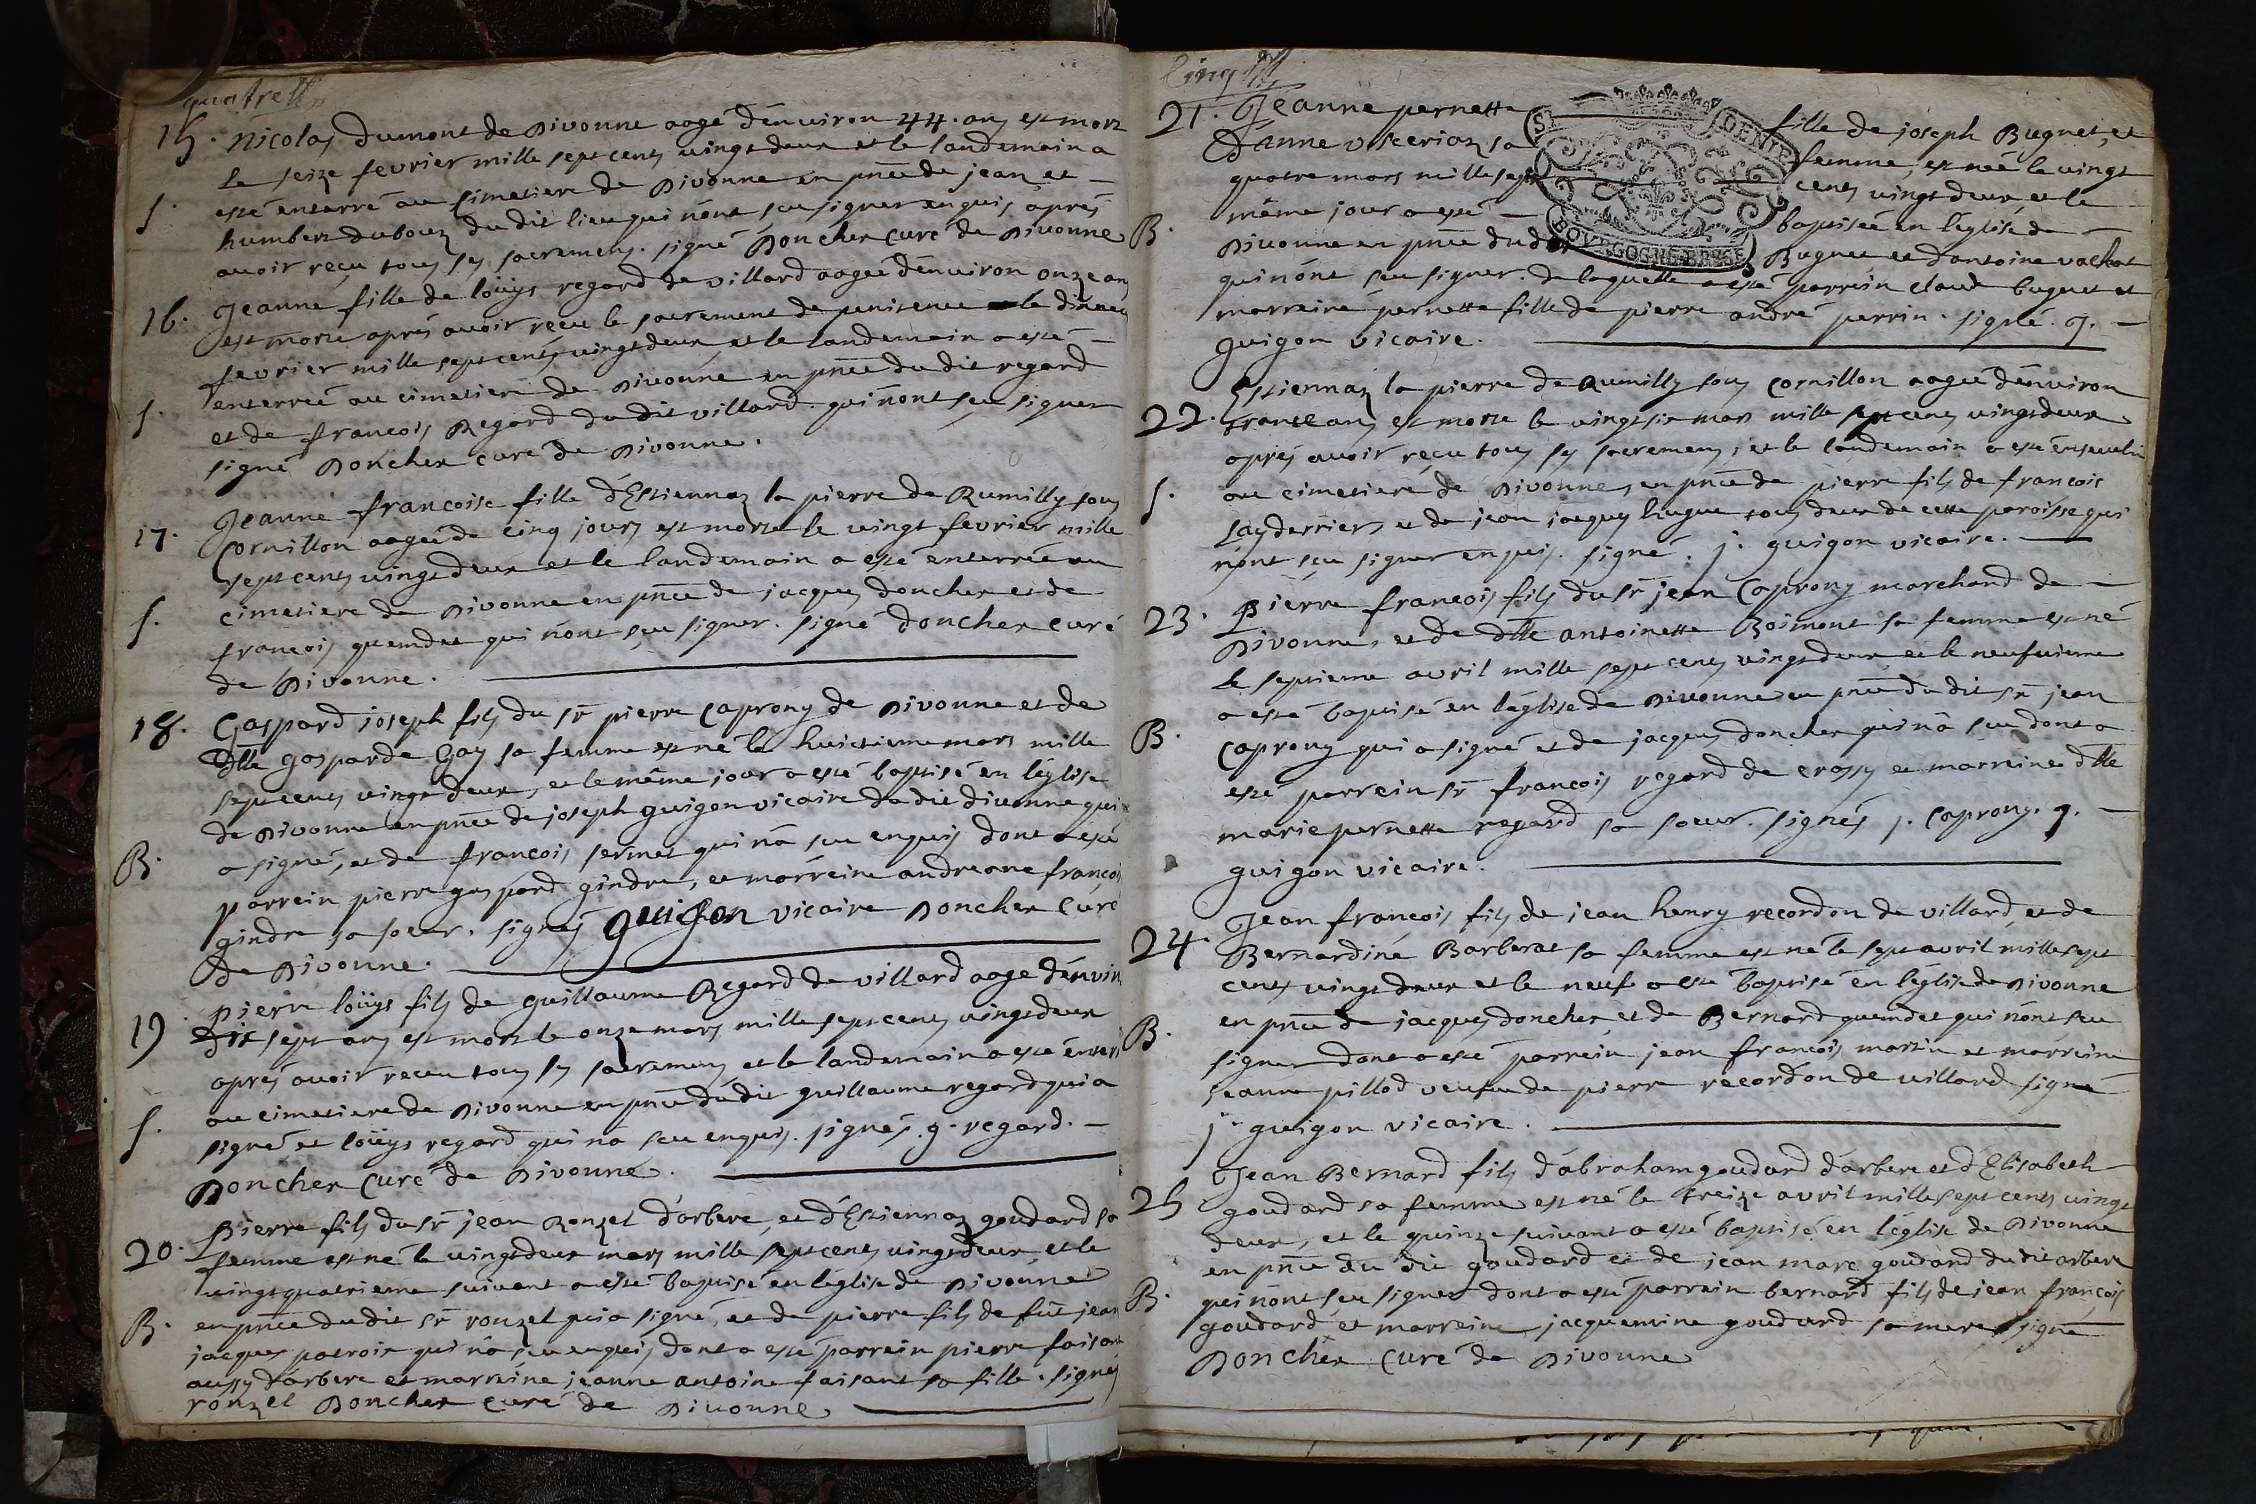 quatre
15. Nicolas dumont de Divonne aagé d'environ 44. ans est mort
le seize fevrier mille sept cents vingt deux et le landemain a
esté enterré au cimetiere de Divonne en pñce de jean et —
S.
humbert dubouz du dit lieu qui n'ont sçu signer enquis aprés
avoir reçu tous ses sacremens. signé Doncher curé de Divonne
16. Jeanne fille de loüys regard de villard aageé d'environ onze ans
est morte aprés avoir reçu le sacrement de penitence le dixneuf
fevrier mille sept cents vingt deux, et le landemain a esté —
enterreé au cimetiere de Divonne en pñce du dit regard
S.
et de francois Regard du dit villard. qui n'ont sçu signer
signé Doncher curé de Divonne.
17. Jeanne francoise fille d'Estiennaz la pierre de Rumilly sous
Cornillon aageé de cinq jours est morte le vingt fevrier mille
sept cents vingt deux et le landemain a esté enterreé au
S.
cimetiere de Divonne en pñce de jacques doncher et de
francois quemdet qui n'ont sçu signer. signé doncher curé
de Divonne.
18. Gaspard joseph fils du sr pierre Caprony de Divonne et de
dlle gasparde Gay sa femme est né le huictieme mars mille
sept cents vingt deux, et le même jour a esté baptisé en l'église
de Divonne en pñce de joseph guigon vicaire du dit divonne qui
B.
a signé, et de francois sermet qui n'a sçu enquis dont a esté
parrein pierre gaspard gindre, et marreine andreane françoi
gindre sa soeur. signés guigon vicaire Doncher Curé
de Divonne.
19. Pierre loüys fils de guillaume Regard de villard aagé d'envir
dix sept ans est mort le onze mars mille sept cents vingt deux
aprés avoir receu tous ses sacremens et le landemain a esté enterr
S.
au cimetiere de Divonne en pñce du dit guillaume regard qui a
signé et loüys regard qui n'a sçu enquis. signés g. regard. —
Doncher Curé de Divonne.
20. Pierre fils du sr jean Ronzel d'arbere, et d'Estiennaz goudard sa
femme est né le vingt deux mars mille sept cents vingt deux, et le
vingt quatrieme suivant a esté baptisé en l'église de Divonne
B.
en pñce du dit sr ronzel qui a signé, et de pierre fils de fut jean
jacques patroix qui n'a sçu enquis dont a esté parrein pierre faisant
aussy d'arbere et marreine jeanne antoine faisant sa fille. signés
ronzel Doncher curé de Divonne
Cinq
21. Jeanne pernette fille de joseph Bugnet, et
d'anne viscerian sa femme, est neé le vingt
quatre mars mille sept cents vingt deux et le
même jour a esté — baptiseé en l'église de —
B.
Divonne en pñce dudit Bugnet et d'antoine vachat
qui n'ont sçu signer. de laquelle a esté parrein claude bugnet et
marreine pernette fille de pierre andré perrin. signé. J. —
guigon vicaire.
ST DENIE
BOVRGOGNE·BRESSE
22. Estiennaz la pierre de Rumilly sous Cornillon aageé d'environ
trante ans est morte le vingt six mars mille sept cents vingt deux
apres avoir reçu tous ses sacremens, et le landemain a esté ensevelie
S.
au cimetiere de Divonne, en pñce de pierre fils de francois
lagderriers et de jean jacques hugue tous deux de cette paroisse qui
n'ont sçu signer enquis. signé. j. guigon vicaire.
23. Pierre francois fils du sr jean Caprony marchand de —
Divonne, et de dlle antoinette Roimont sa femme est né
le septieme avril mille sept cents vingt deux, et le neufvieme
a esté baptisé en l'église de Divonne en pñce du dit sr jean
B.
Caprony qui a signé et de jacques doncher qui n'a sçu dont a
esté parrein sr francois regard de crassy et marreine dlle
marie pernette regard sa soeur. signés j. Caprony. J. —
guigon vicaire.
24. Jean francois fils de jean henry recordon de villard, et de
Bernardine Barberat sa femme est né le sept avril mille sept
cents vingt deux et le neuf a esté baptisé en l'église de Divonne
B.
en pñce de jacques doncher, et de Bernard quemdet qui n'ont sçu
signer dont a esté parrein jean francois martin et marreine
jeanne pillod veufve de pierre recordon de villard signé
j. guigon vicaire.
25 Jean Bernard fils d'abraham goudard d'arbere et d'Elisabeth —
goudard sa femme est né le treize avril mille sept cents vingt
deux, et le quinze suivant a esté baptisé en l'église de Divonne
en pñce du dit goudard et de jean marc goudard du dit arbere
B.
qui n'ont sçu signer dont a esté parrein bernard fils de jean françois
goudard et marreine jacquemine goudard sa mere signé
Doncher Curé de Divonne